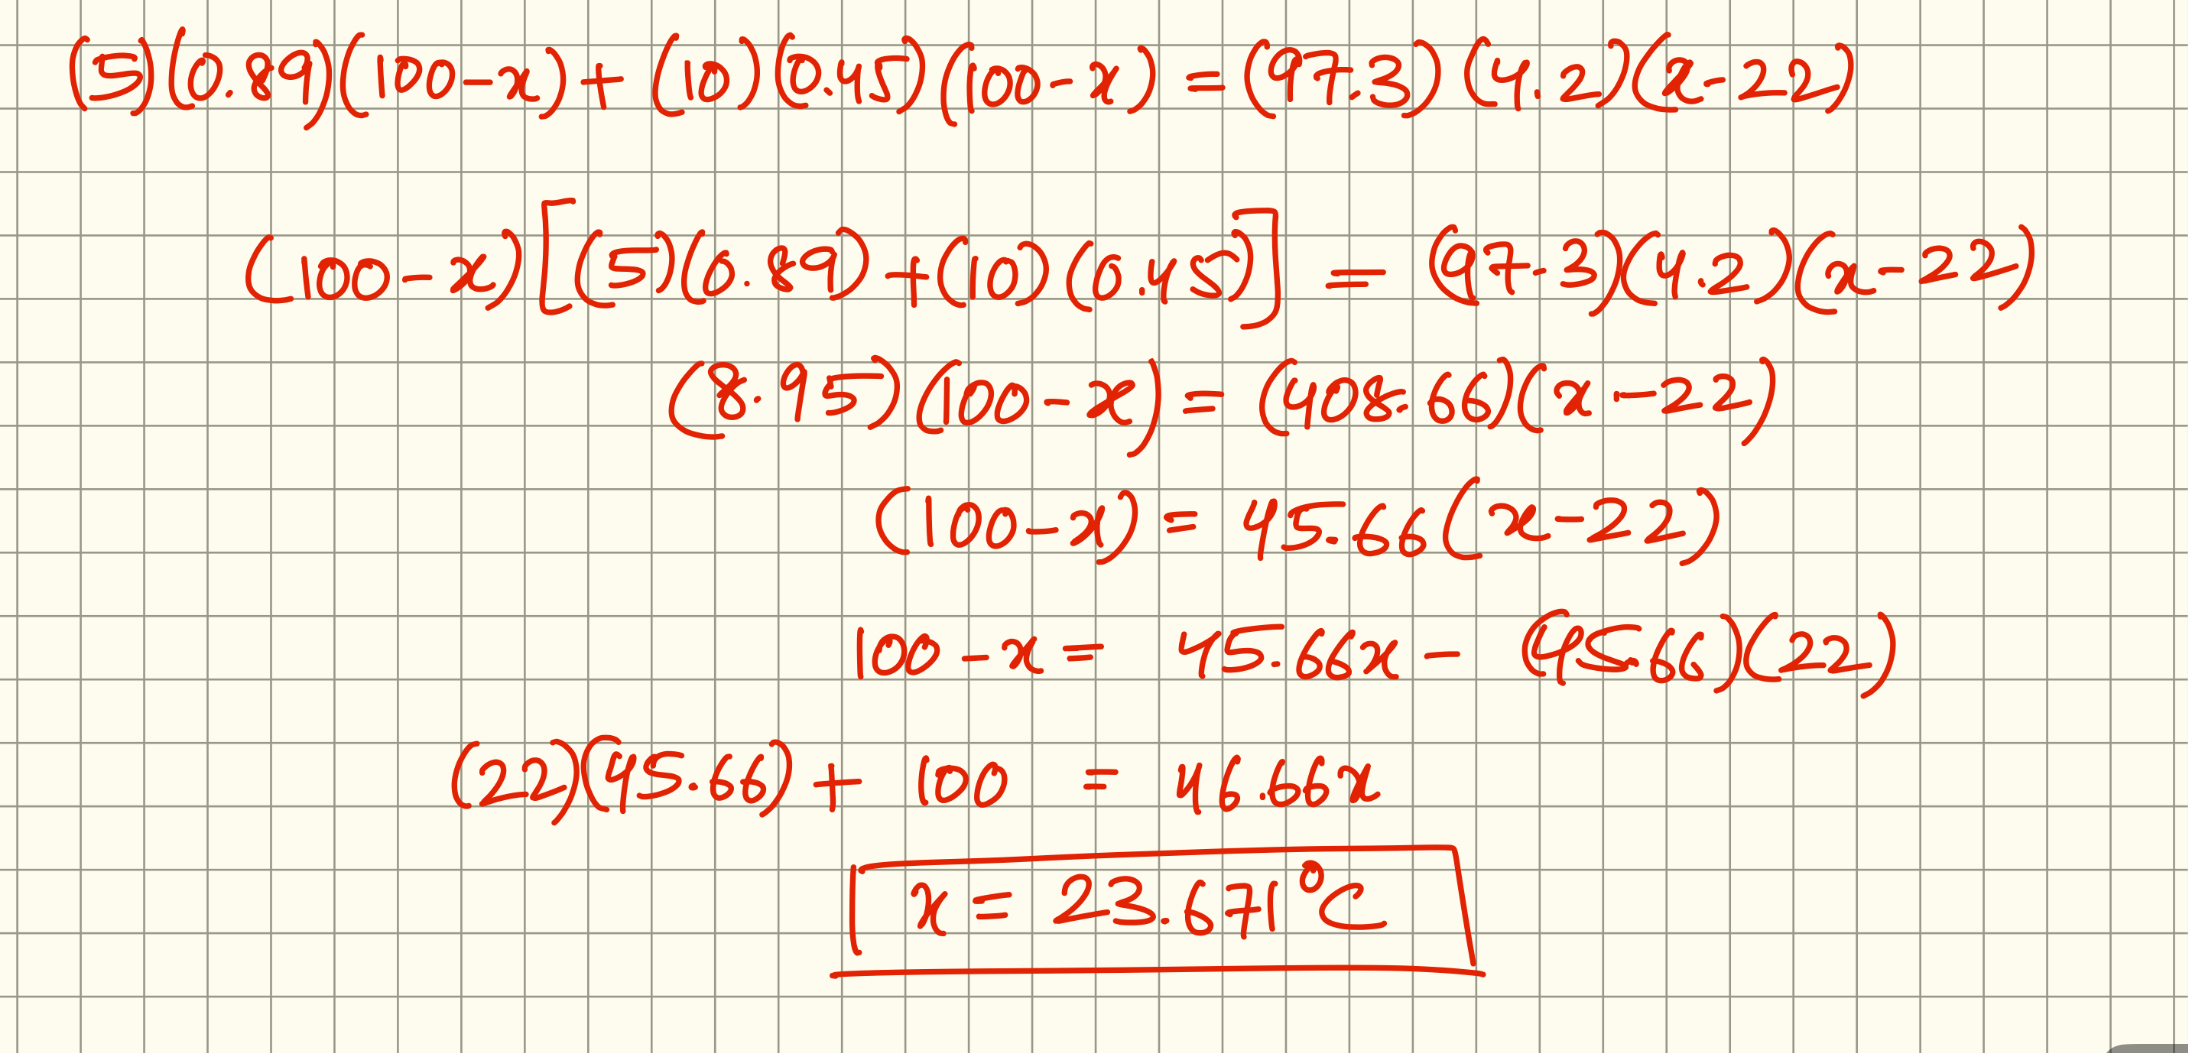 (5)(0.89)(100-x) + (10)(0.45)(100-x) = (97.3)(4.2)(x-22)
(100-x)[(5)(0.89)+(10)(0.45)] = (97.3)(4.2)(x-22)
(8.95)(100-x) = (408.66)(x-22)
(100-x) = 45.66(x-22)
100-x = 45.66x - (45.66)(22)
(22)(45.66) + 100 = 46.66x
x = 23.671°C